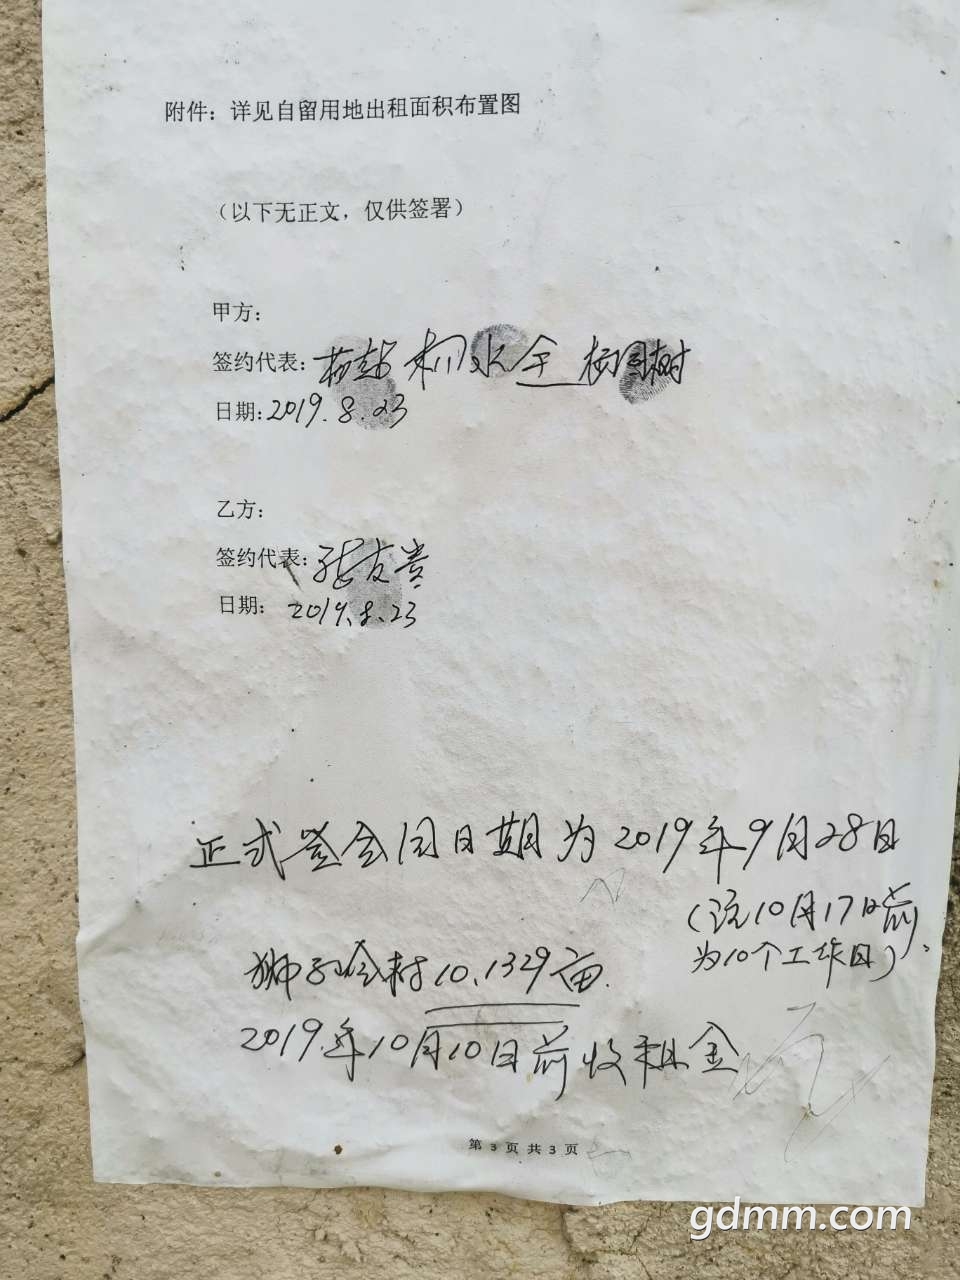 附件：详见自留用地出租面积布置图
（以下无正文，仅供签署）
甲方：
签约代表：杨水金
日期：2019.8.23
乙方：
签约代表：张友贵
日期：2019.8.23
正式签合同日期为2019年9月28日
10月17日前
为10个工作日）。
狮子岭村10.1329亩.
2019年10月10日前收租金
第 3 页 共 3 页
gdmm.com